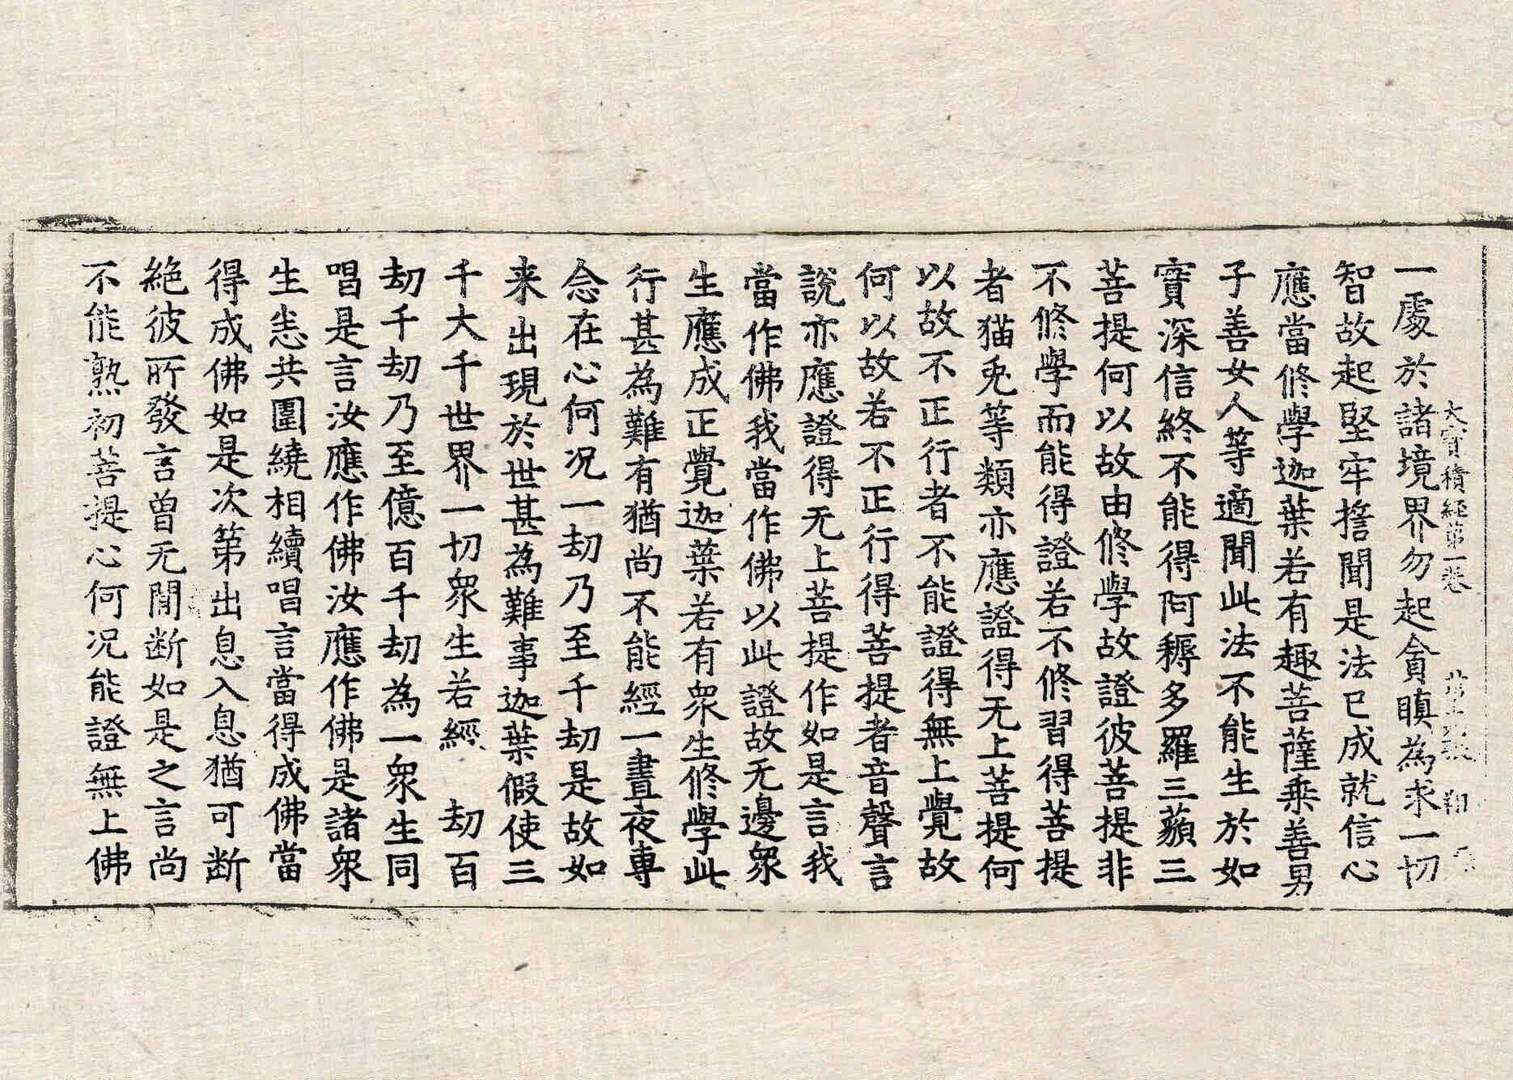 大寳積経苐一卷
一處於諸境界勿起貪瞋為求一切
智故起堅牢擔聞是法已成就信心
應當修學迦葉若有趣菩薩乘善男
子善女人等適聞此法不能生於如
寶深信終不能得阿耨多羅三藐三
菩提何以故由修學故證彼菩提非
不修學而能得證若不修習得菩提
者猫兎等類亦應證得无上菩提何
以故不正行者不能證得無上覺故
何以故若不正行得菩提者音聲言
說亦應證得无上菩提作如是言我
當作佛我當作佛以此證故无邊衆
生應成正覺迦葉若有衆生修學此
行甚為難有猶尚不能經一晝夜專
念在心何况一劫乃至千劫是故如
来出現於世甚為難事迦葉假使三
千大千世界一切衆生若經 劫百
劫千劫乃至億百千劫為一衆生同
唱是言汝應作佛汝應作佛是諸衆
生恙共圍繞相續唱言當得成佛當
得成佛如是次第出息入息猶可断
絶彼所發言曾无間断如是之言尚
不能熟初菩提心何况能證無上佛